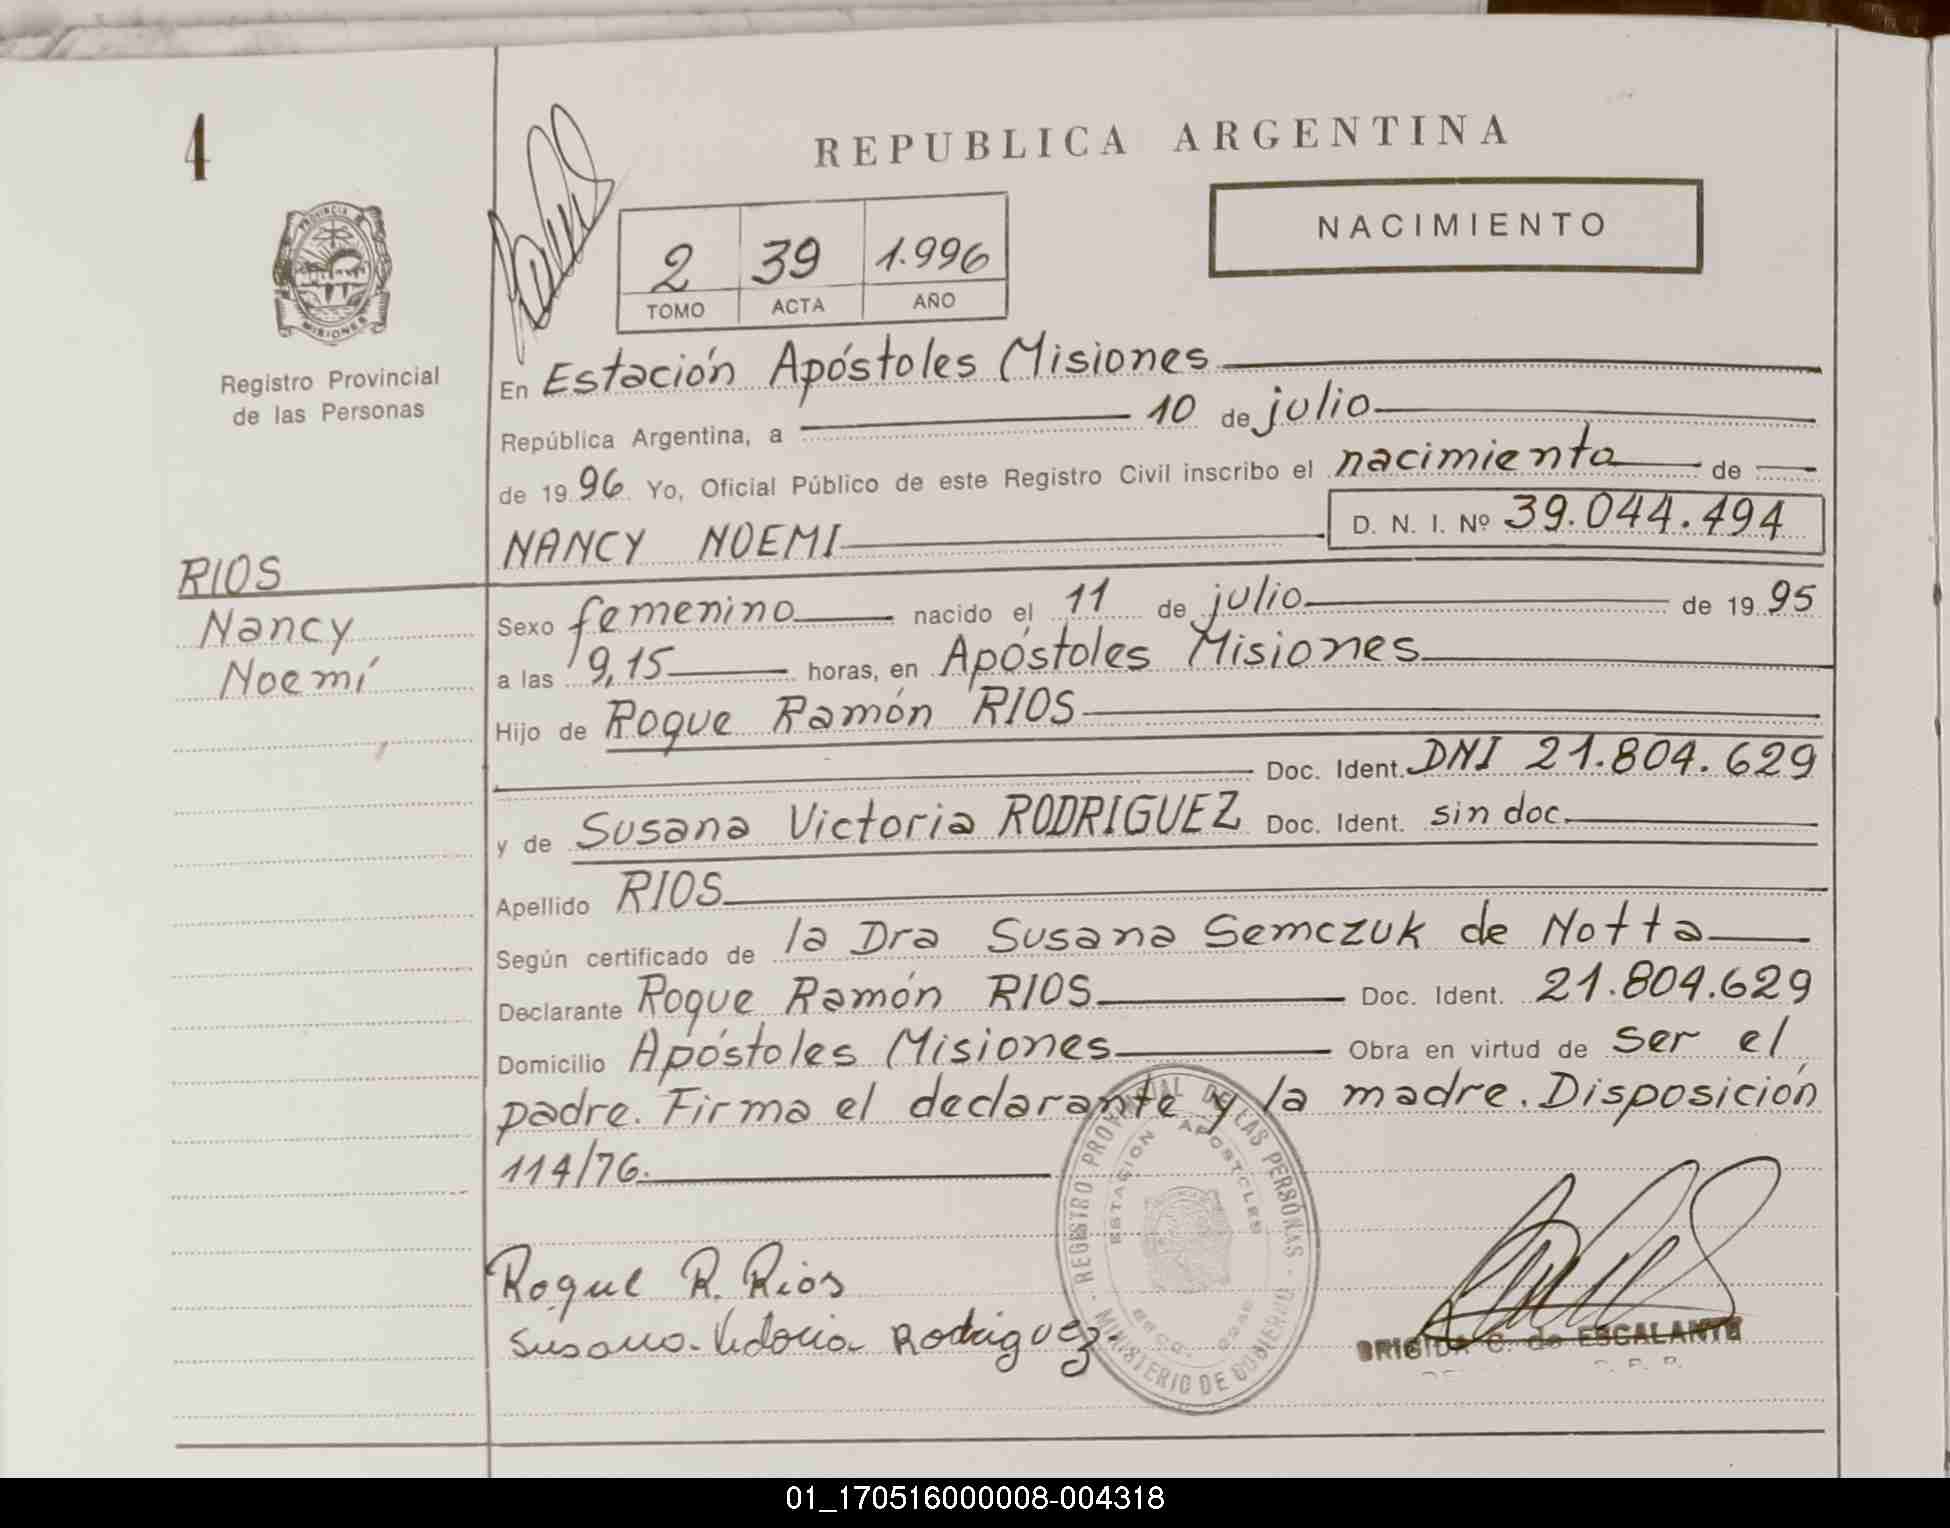 4
REPUBLICA ARGENTINA
NACIMIENTO
2 39 1.996
TOMO ACTA AÑO
PROVINCIA DE
MISIONES
Registro Provincial
de las Personas
En Estación Apóstoles Misiones
República Argentina, a 10 de julio
de 19 96 Yo, Oficial Público de este Registro Civil inscribo el nacimiento de
NANCY NOEMI D. N. I. Nº 39.044.494
RIOS
Nancy
Noemí
Sexo femenino nacido el 11 de julio de 19 95
a las 9,15 horas, en Apóstoles Misiones
Hijo de Roque Ramón RIOS
Doc. Ident. DNI 21.804.629
y de Susana Victoria RODRIGUEZ Doc. Ident. sin doc.
Apellido RIOS
Según certificado de la Dra Susana Semczuk de Notta
Declarante Roque Ramón RIOS Doc. Ident. 21.804.629
Domicilio Apóstoles Misiones Obra en virtud de ser el
padre. Firma el declarante y la madre. Disposición
114/76.
REGISTRO PROVINCIAL DE LAS PERSONAS - MINISTERIO DE GOBIERNO -
ESTACION APOSTOLES
Roque R. Rios
Susana Victoria Rodriguez.
BRIGIDA C. de ESCALANTE
01_170516000008-004318